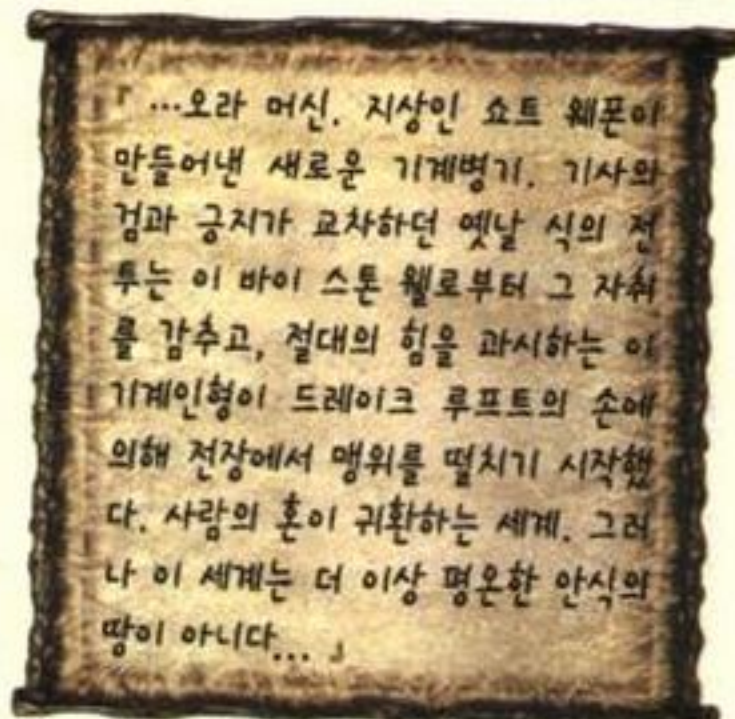 『 …오라 머신. 지상인 쇼트 웨폰이
만들어낸 새로운 기계병기. 기사의
검과 긍지가 교차하던 옛날 식의 전
투는 이 바이 스톤 웰로부터 그 자취
를 감추고, 절대의 힘을 과시하는 이
기계인형이 드레이크 루프트의 손에
의해 전장에서 맹위를 떨치기 시작했
다. 사람의 혼이 귀환하는 세계. 그러
나 이 세계는 더 이상 평온한 안식의
땅이 아니다... 』